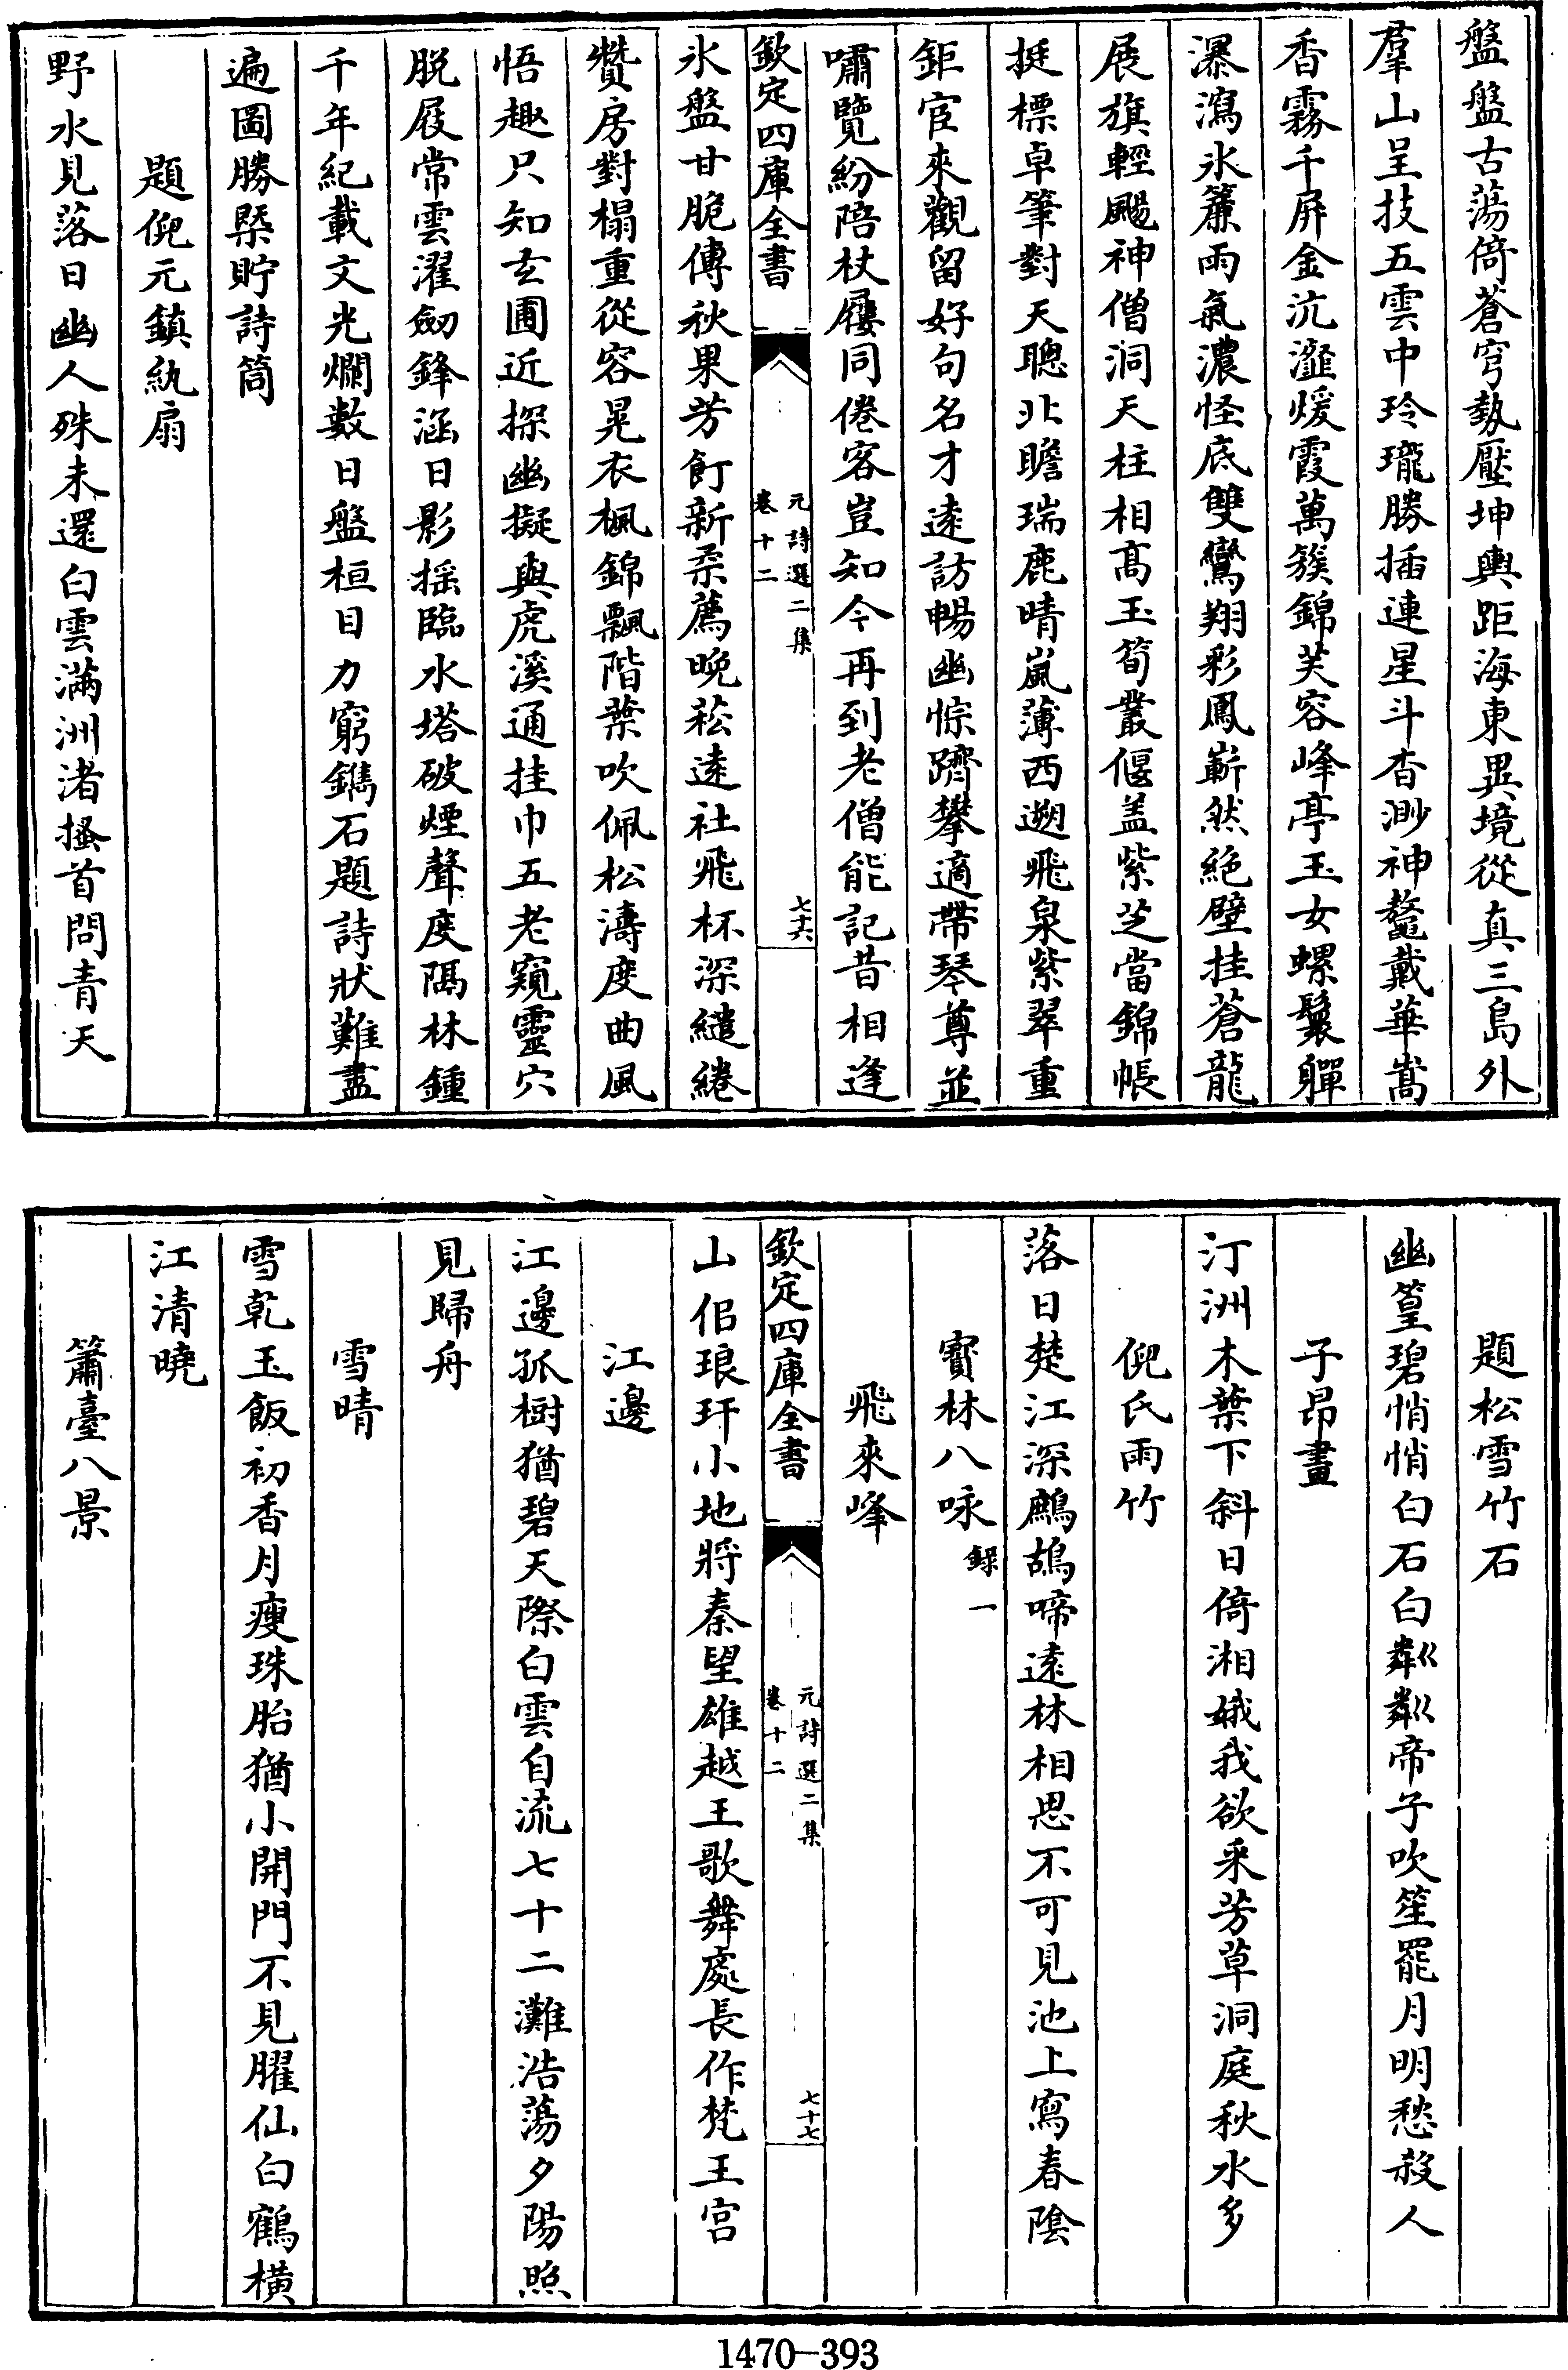 盤盤古蕩倚蒼穹勢壓坤輿距海東異境從真三島外
羣山呈技五雲中玲瓏勝插連星斗杳渺神鼇戴華嵩
香霧千屏金沆瀣煖霞萬簇錦芙容峰亭玉女螺鬟軃
瀑瀉氷簾雨氣濃怪底雙鸞翔彩鳳嶄然絶壁挂蒼龍
展旗輕颺神僧洞天柱相髙玉筍叢偃盖紫芝當錦帳
挺標卓筆對天聰北瞻瑞鹿晴嵐薄西遡飛泉紫翠重
鉅宦來觀留好句名才逺訪暢幽悰躋攀適帶琴尊並
嘯覽紛陪杖屨同倦客豈知今再到老僧能記昔相逢
欽定四庫全書
元詩選二集
卷十二
七十六
氷盤甘脆傳秋果芳飣新柔薦晩菘逺社飛杯深繾綣
贊房對榻重從容晃衣楓錦飄階葉吹佩松濤度曲風
悟趣只知𤣥圃近探幽擬與虎溪通挂巾五老窺靈穴
脱屐常雲濯劒鋒涵日影揺臨水塔破煙聲度隔林鍾
千年紀載文光爛數日盤桓目力窮鐫石題詩狀難盡
遍圖勝槩貯詩筒
題倪元鎮紈扇
野水見落日幽人殊未還白雲滿洲渚搔首問青天
題松雪竹石
幽篁碧悄悄白石白粼粼帝子吹笙罷月明愁殺人
子昻畫
汀洲木葉下斜日倚湘娥我欲采芳草洞庭秋水多
倪氏雨竹
落日楚江深鷓鴣啼逺林相思不可見池上寫春隂
寳林八咏錄一
飛來峰
欽定四庫全書
元詩選二集
卷十二
七十七
山佀琅玕小地將秦望雄越王歌舞處長作梵王宫
江邊
江邊孤樹猶碧天際白雲自流七十二灘浩蕩夕陽照
見歸舟
雪晴
雪乾玉飯初香月瘦珠胎猶小開門不見臞仙白鶴横
江清曉
簫臺八景
1470-393